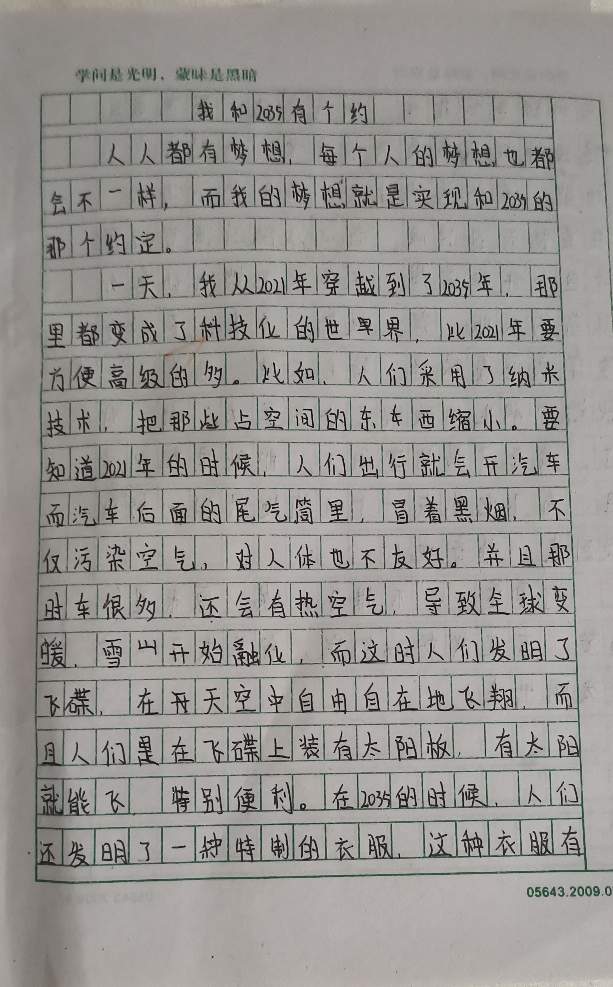 学问是光明，蒙昧是黑暗
我和2035有个约
人人都有梦想，每个人的梦想也都
会不一样，而我的梦想就是实现和2035的
那个约定。
一天，我从2021年穿越到了2035年，那
里都变成了科技化的世界，比2021年要
方便高级的多。比如，人们采用了纳米
技术，把那些占空间的东西缩小。要
知道2021年的时候，人们出行就会开汽车
而汽车后面的尾气筒里，冒着黑烟，不
仅污染空气，对人体也不友好。并且那
时车很多，还会有热空气，导致全球变
暖，雪山开始融化，而这时人们发明了
飞碟，在天空中自由自在地飞翔，而
且人们是在飞碟上装有太阳板，有太阳
就能飞，特别便利。在2035的时候，人们
还发明了一种特制的衣服，这种衣服有
05643.2009.0